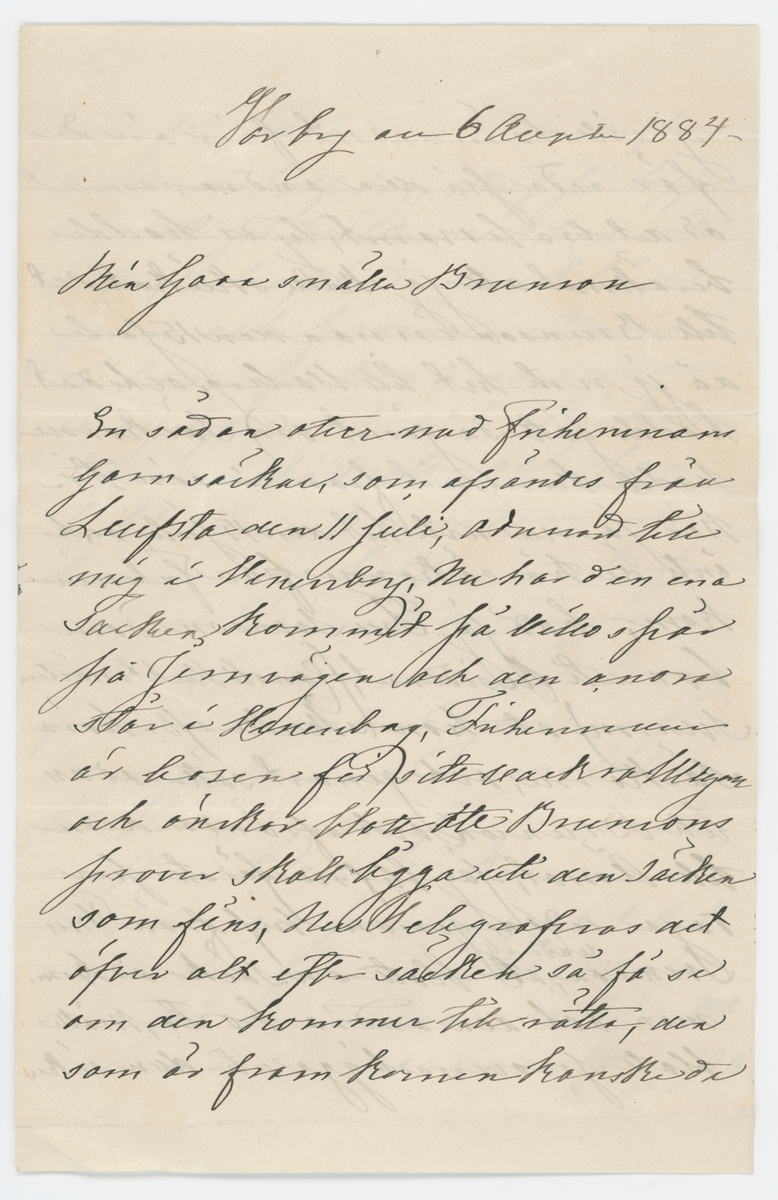 Torby den 6 Augusti 1884-
Min Goda snälla Brunson
En sådan oturr med Friherrinnans
Garn säckar, som afsändes från
Leufsta den 11 Juli, ordnad till
mig i Venersborg, Nu har den ena
Säcken kommit på villospår
på Jernvägen och den andra
står i Venersborg, Friherrinnan
är ledsen för sitt vackra Ullgarn
och önskar blott att Brunsons
prover skall ligga uti den säcken
som fins, Nu telegraferas det
öfver alt efter säcken så få se
om den kommer till rätta, den
som är fram kommen kanske de